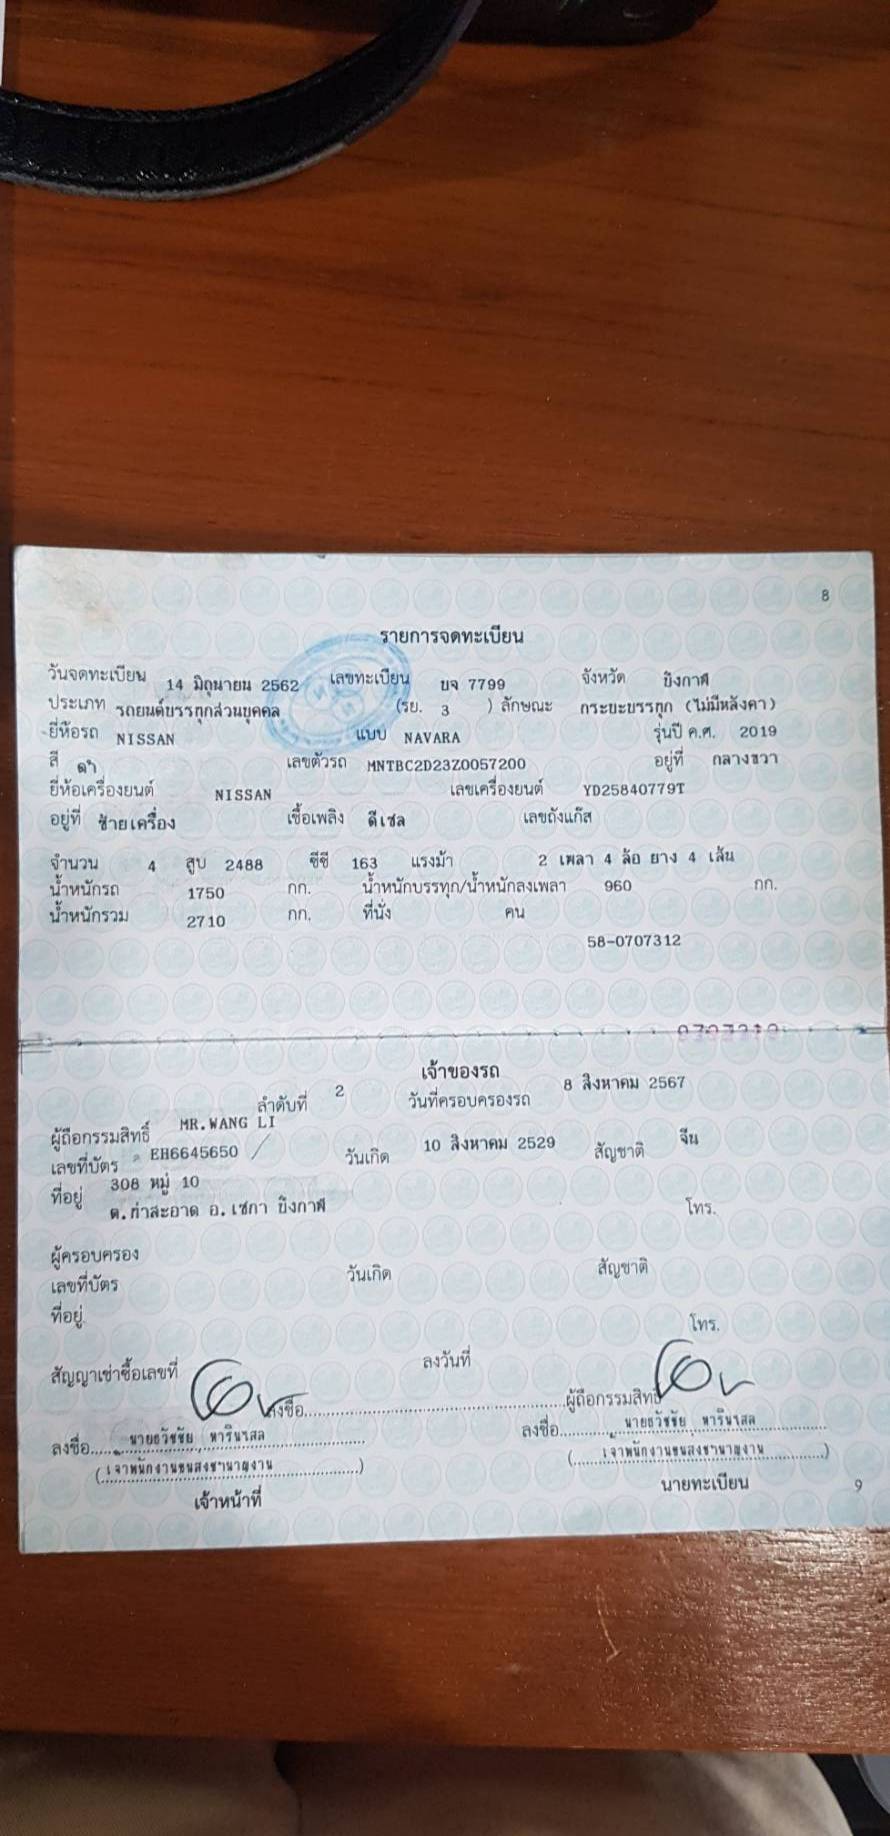 8
รายการจดทะเบียน
วันจดทะเบียน 14 มิถุนายน 2562 เลขทะเบียน บจ 7799 จังหวัด บึงกาฬ
ประเภท รถยนต์บรรทุกส่วนบุคคล (รย. 3 ) ลักษณะ กระบะบรรทุก (ไม่มีหลังคา)
ยี่ห้อรถ NISSAN แบบ NAVARA รุ่นปี ค.ศ. 2019
สี ดำ เลขตัวรถ MNTBC2D23Z0057200 อยู่ที่ กลางขวา
ยี่ห้อเครื่องยนต์ NISSAN เลขเครื่องยนต์ YD25840779T
อยู่ที่ ซ้ายเครื่อง เชื้อเพลิง ดีเซล เลขถังแก๊ส
จำนวน 4 สูบ 2488 ซีซี 163 แรงม้า 2 เพลา 4 ล้อ ยาง 4 เส้น
น้ำหนักรถ 1750 กก. น้ำหนักบรรทุก/น้ำหนักลงเพลา 960 กก.
น้ำหนักรวม 2710 กก. ที่นั่ง คน
58-0707312
เจ้าของรถ
ลำดับที่ 2 วันที่ครอบครองรถ 8 สิงหาคม 2567
ผู้ถือกรรมสิทธิ์ MR.WANG LI
เลขที่บัตร EH6645650 วันเกิด 10 สิงหาคม 2529 สัญชาติ จีน
ที่อยู่ 308 หมู่ 10
ต.ท่าสะอาด อ.เซกา บึงกาฬ โทร.
ผู้ครอบครอง
เลขที่บัตร วันเกิด สัญชาติ
ที่อยู่
โทร.
สัญญาเช่าซื้อเลขที่ ลงวันที่
ลงชื่อ ผู้ถือกรรมสิทธิ์
ลงชื่อ นายธวัชชัย ลงชื่อ นายธวัชชัย
(เจ้าพนักงานขนส่งชำนาญงาน) (เจ้าพนักงานขนส่งชำนาญงาน)
เจ้าหน้าที่ นายทะเบียน
9